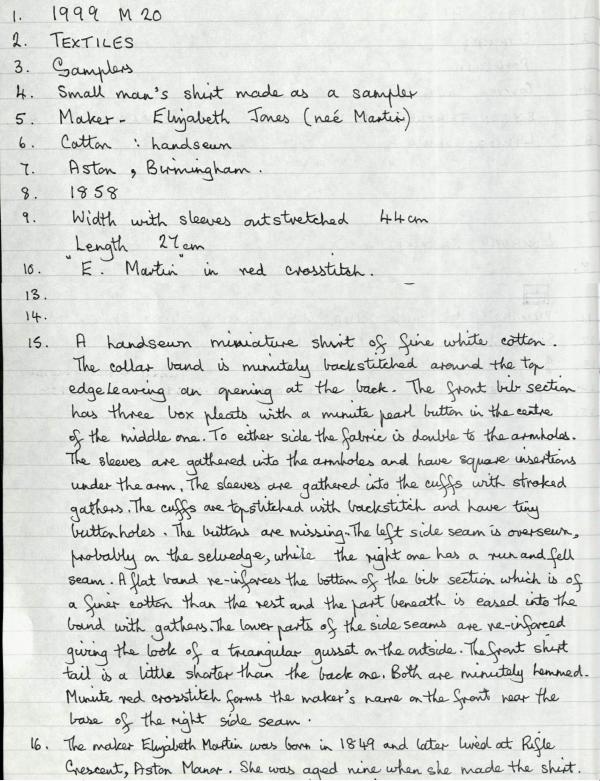 1. 1999 M 20
2. TEXTILES
3. Samplers
4. Small man's shirt made as a sampler
5. Maker - Elizabeth Jones (neé Martin)
6. Cotton : handsewn
7. Aston, Birmingham.
8. 1858
9. Width with sleeves outstretched 44cm
Length 27cm
10. "E. Martin" in red crosstitch.
13.
14.
15. A handsewn miniature shirt of fine white cotton.
The collar band is minutely backstitched around the top
edge leaving an opening at the back. The front bib section
has three box pleats with a minute pearl button in the centre
of the middle one. To either side the fabric is double to the armholes.
The sleeves are gathered into the armholes and have square insertions
under the arm. The sleeves are gathered into the cuffs with stroked
gathers. The cuffs are topstitched with backstitch and have tiny
buttonholes. The buttons are missing. The left side seam is oversewn,
probably on the selvedge, while the right one has a run and fell
seam. A flat band re-inforces the bottom of the bib section which is of
a finer cotton than the rest and the part beneath is eased into the
band with gathers. The lower parts of the side seams are re-inforced
giving the look of a triangular gusset on the outside. The front shirt
tail is a little shorter than the back one. Both are minutely hemmed.
Minute red crosstitch forms the maker's name on the front near the
base of the right side seam.
16. The maker Elizabeth Martin was born in 1849 and later lived at Rifle
Crescent, Aston Manor. She was aged nine when she made the shirt.